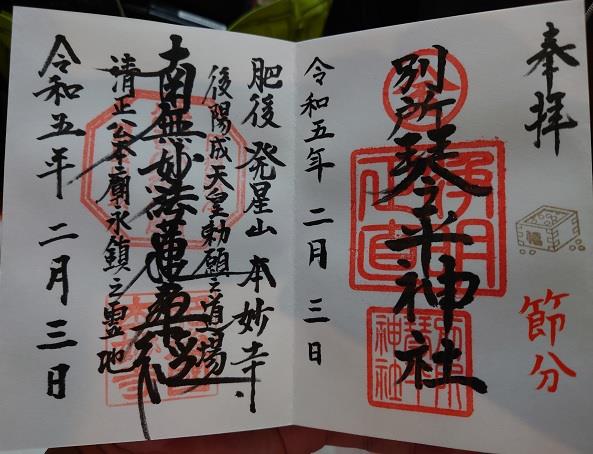 奉拝
節分
福
別所琴平神社
令和五年 二月 三日
肥後 発星山 本妙寺
後陽成天皇勅願之道場
南無妙法蓮華経
清正公本廟永鎮之霊地
令和五年 二月 三日